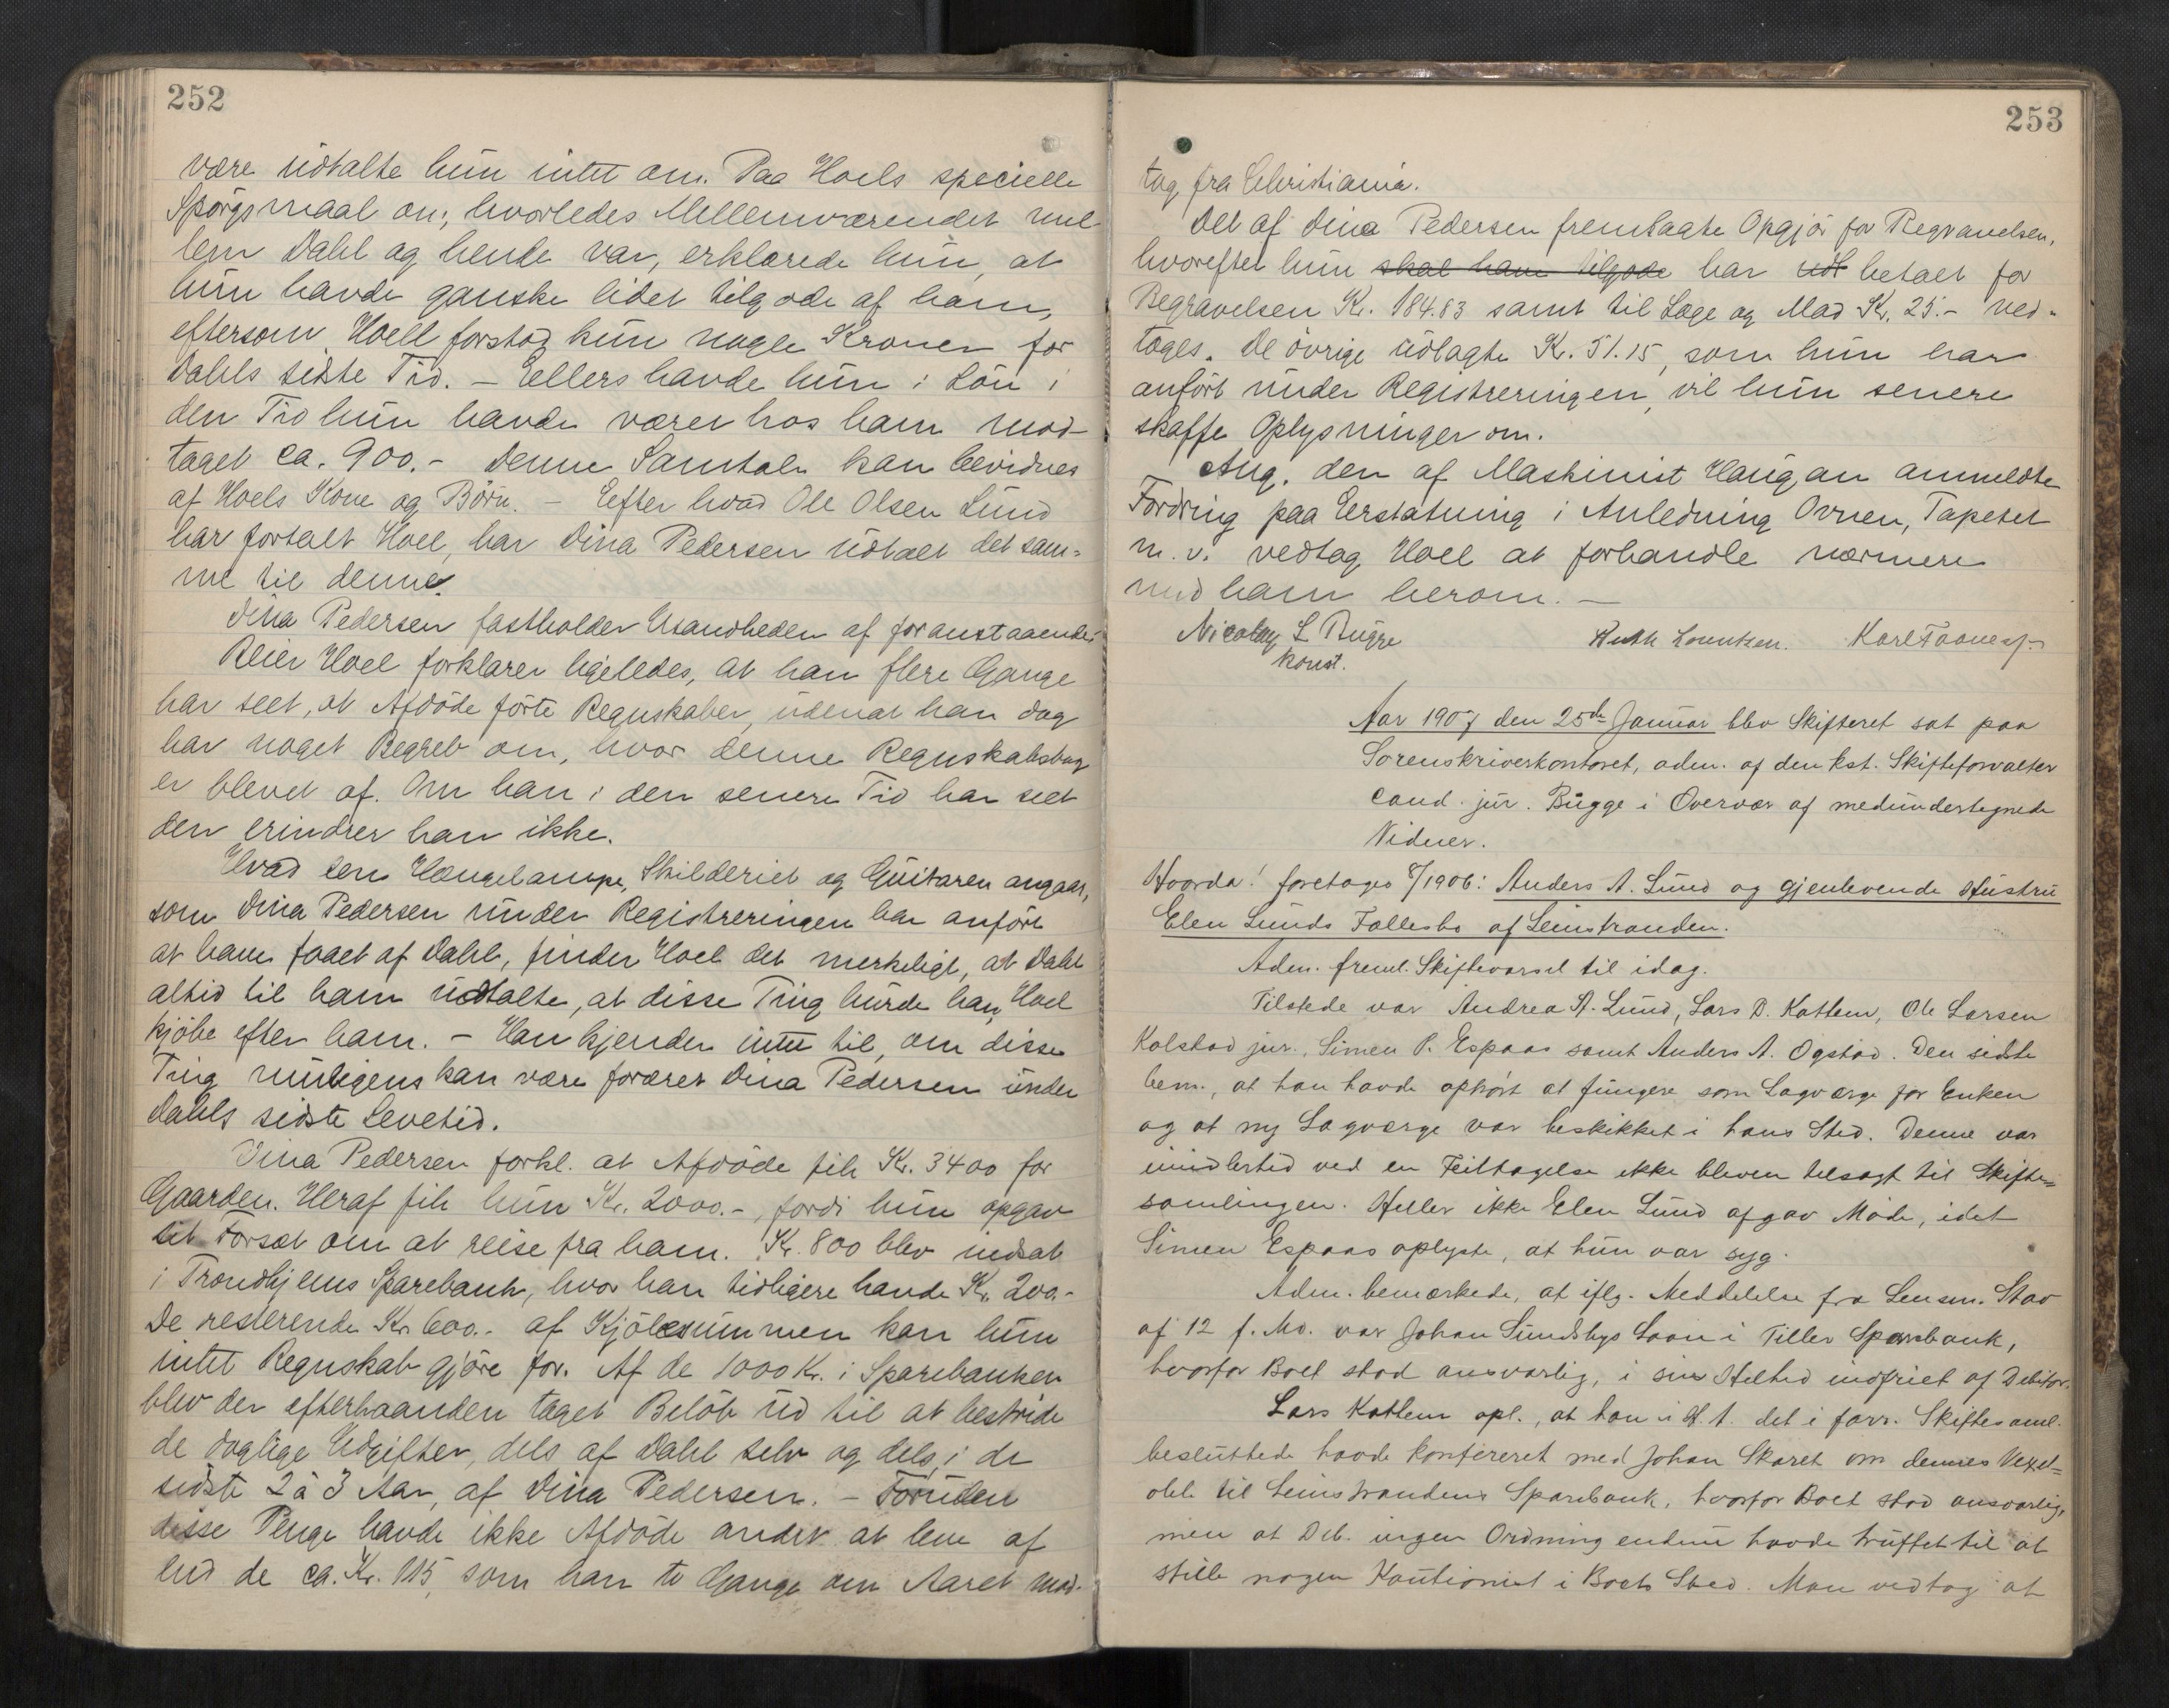 252
være udtalte hun intet om. Paa Hoels specielle
Spörgsmaal om, hvorledes Mellemværendet mel
lem Dahl og hende var, erklærede hun, at
hun havde ganske lidet tilgode af ham,
eftersom Hoell forstod kun nogle Kroner for
Dahls sidste Tid. – Eellers havde hun i Lön i
den Tid hun havde været hos ham mod-
taget ca. 900.- Denne Samtale kan bevidnes
af Hoels Kone og Börn. – Eefter hvad Ole Olsen Lund
har fortalt Hoel, har Dina Pedersen udtalt det sam-
me til denne.
Dina Pedersen fastholder Usandheden af foranstaaende.
Reier Hoel forklarer ligeledes, at han flere Gange
har seet, at Afdöde förte Regnskaber, udenat han dog
har noget Begreb om, hvor denne Regnskabsbog
er blevet af. Om han i den senere Tid har seet
den erindrer han ikke.
Hvad den Hængelampe, Skilderiet og Guitaren angaar,
som Dina Pedersen under Registreringen har anfört
at have faaet af Dahl, finder Hoel det merkeligt, at Dahl
altid til ham udtalte, at disse Ting burde han, Hoel
kjöbe efter ham. – Han kjender intet til, om disse
Ting muligens kan være foræret Dina Pedersen under
Dahls sidste Levetid.
Dina Pedersen forkl. at Afdöde fik Kr. 3400 for
Gaarden. Heraf fik hun Kr. 2000.-, fordi hun opgav
sit Forsæt om at reise fra ham. Kr. 800 blev indsat
i Trondhjems Sparebank, hvor han tidligere havde Kr. 200.-
De resterende Kr. 600.- af Kjöbesummen kan hun
intet Regnskab gjöre for. Af de 1000 Kr. i Sparebanken
blev der efterhaanden taget Belöb ud til at bestride
de daglige Udgifter, dels af Dahl selv og dels, i de
sidste 2 à 3 Aar, af Dina Pedersen. – Foruden
disse Penge havde ikke Afdöde andet at leve af
end de ca. Kr. 115, som han to Gange om Aaret mod-
253
tog fra Christiania.
Det af Dina Pedersen fremlagte Opgjör for Begravelsen,
hvorefter hun skal have tilgode har udl betalt for
Begravelsen Kr. 184.83 samt til Læge og Mad Kr. 25.- ved-
toges. De övrige udlagte Kr. 51.15, som hun har
anfört under Registreringen, vil hun senere
skaffe Oplysninger om.
Ang. den af Maskinist Haugan anmeldte
Fordring paa Eerstatning i Anledning Ovnen, Tapetet
m. v. vedtog Hoel at forhandle nærmere
med ham herom. –
Nicolay L Bugge
konst.
Ruth Lorentzen. Karl
Aar 1907 den 25de Januar blev Skifteret sat paa
Sorenskriverkontoret, adm. af den kst. Skifteforvalter
cand. jur. Bugge i Overvær af medundertegnede
Vidner.
Hvorda! foretoges 8/1906: Anders A. Lund og gjenlevende Hustru
Elen Lunds Fællesbo af Leinstranden.
Adm. freml. Skiftevarsel til idag.
Tilstede var Andrea A. Lund, Lars D. Kattem, Ole Larsen
Kolstad jur., Simen P. Espaas samt Anders A. Ogstad. Den sidste
bem., at han havde ophört at fungere som Lagværge for Enken
og at ny Lagværge var beskikket i hans Sted. Denne var
imidlertid ved en Feiltagelse ikke bleven tilsagt til Skifte-
samlingen. Heller ikke Elen Lund afgav Möde, idet
Simen Espaas oplyste, at hun var syg.
Adm. bemærkede, at iflg. Meddelelse fra Lensm. Stav
af 12 f. Md. var Johan Sundsbys Laan i Tiller Sparebank,
hvorfor Boet stod ansvarlig, i sin Helhed indfriet af Debitor.
Lars Kattem opl., at han i H. t. det i forr. Skiftesaml.
besluttede havde konfereret med Johan Skaret om dennes Vexel-
obl. til Leinstrandens Sparebank, hvorfor Boet stod ansvarlig,
men at Deb. ingen Ordning endnu havde truffet til at
stille nogen Kautionist i Boets Sted. Man vedtog at